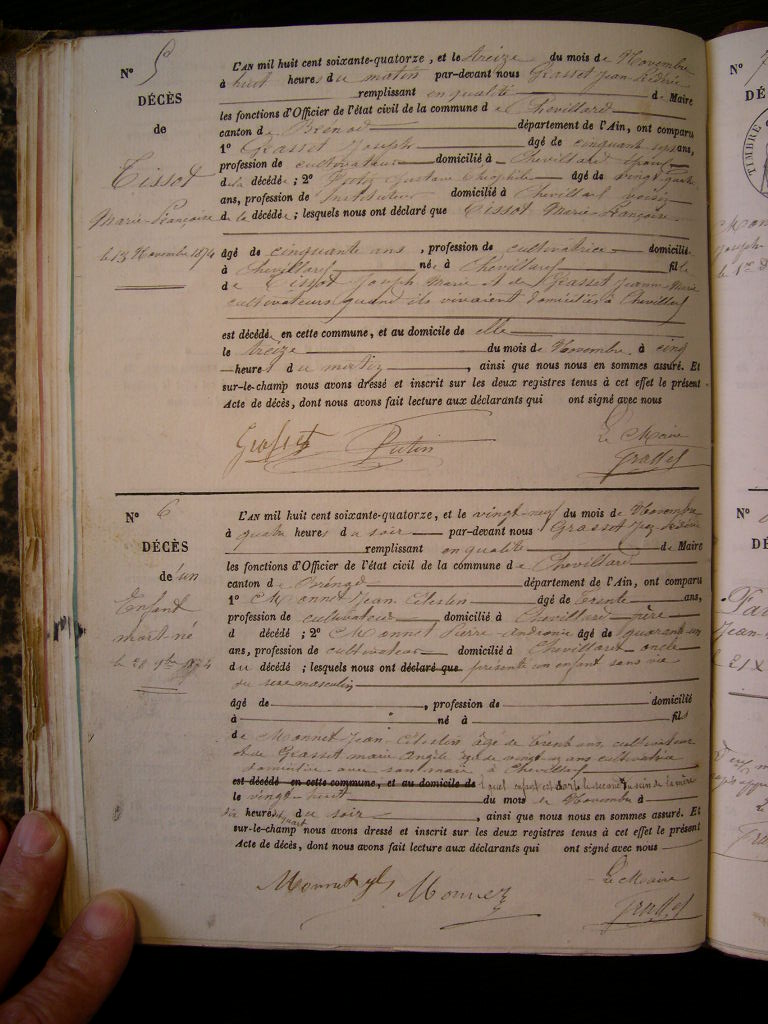 N° 5
DÉCÈS
de
Tissot
Marie-Françoise
le 13 Novembre 1874
L'AN mil huit cent soixante-quatorze, et le treize du mois de Novembre
à huit heures du matin par-devant nous Grasset Jean
remplissant en qualité de Maire
les fonctions d'Officier de l'état civil de la commune de Chevillard
canton de Brénod département de l'Ain, ont comparu
1° Grasset Joseph âgé de cinquante ans,
profession de cultivateur domicilié à Chevillard époux
de la décédée ; 2° Putin Gustave Théophile âgé de vingt quatre
ans, profession de Instituteur domicilié à Chevillard voisin
de la décédée ; lesquels nous ont déclaré que Tissot Marie-Françoise
âgé de cinquante ans, profession de cultivatrice domiciliée
à Chevillard née à Chevillard fille
de Tissot Joseph Marie et de Grasset Jeanne Marie
cultivateurs quand ils vivaient domiciliés à Chevillard
est décédée en cette commune, et au domicile de elle
le treize du mois de Novembre à cinq
heures du matin, ainsi que nous nous en sommes assuré. Et
sur-le-champ nous avons dressé et inscrit sur les deux registres tenus à cet effet le présent
Acte de décès, dont nous avons fait lecture aux déclarants qui ont signé avec nous
Grasset Putin Le Maire
Grasset
N° 6
DÉCÈS
de un
Enfant
mort-né
le 28 9bre 1874
L'AN mil huit cent soixante-quatorze, et le vingt-neuf du mois de Novembre
à quatre heures du soir par-devant nous Grasset
remplissant en qualité de Maire
les fonctions d'Officier de l'état civil de la commune de Chevillard
canton de Brénod département de l'Ain, ont comparu
1° Monnet Jean Célestin âgé de trente ans,
profession de cultivateur domicilié à Chevillard père
d décédé ; 2° Monnet Pierre Andronic âgé de quarante-un
ans, profession de cultivateur domicilié à Chevillard oncle
du décédé ; lesquels nous ont déclaré que présenté un enfant sans vie
du sexe masculin
âgé de , profession de domicilié
à né à fils
de Monnet Jean Célestin âgé de trente ans cultivateur
et de Grasset Marie Angèle âgée de vingt ans cultivatrice
domiciliée avec son mari à Chevillard
est décédé en cette commune, et au domicile de lequel enfant est sorti du sein de la mère
le vingt-huit du mois de Novembre à
dix heures du soir, ainsi que nous nous en sommes assuré. Et
sur-le-champ nous avons dressé et inscrit sur les deux registres tenus à cet effet le présent
Acte de décès, dont nous avons fait lecture aux déclarants qui ont signé avec nous
Monnet Monnet Le Maire
Grasset
N°
DÉ
TIMBRE
Joseph
le 1er
N°
DÉ
Jean
21 X